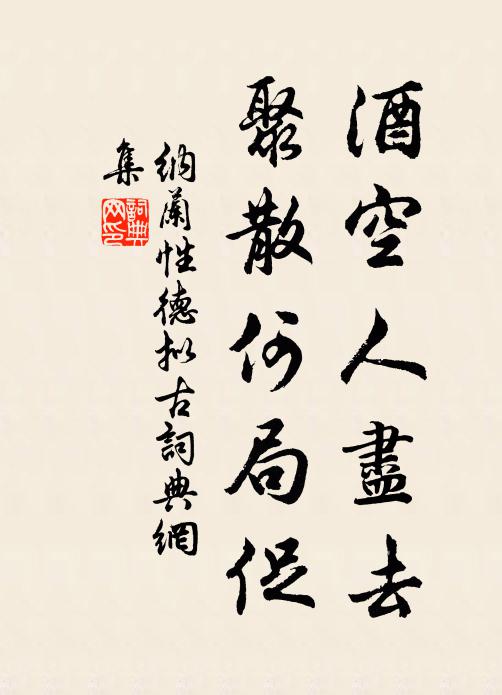 酒空人盡去
聚散何局促
納蘭性德擬古詞典網
集
詞典
网印